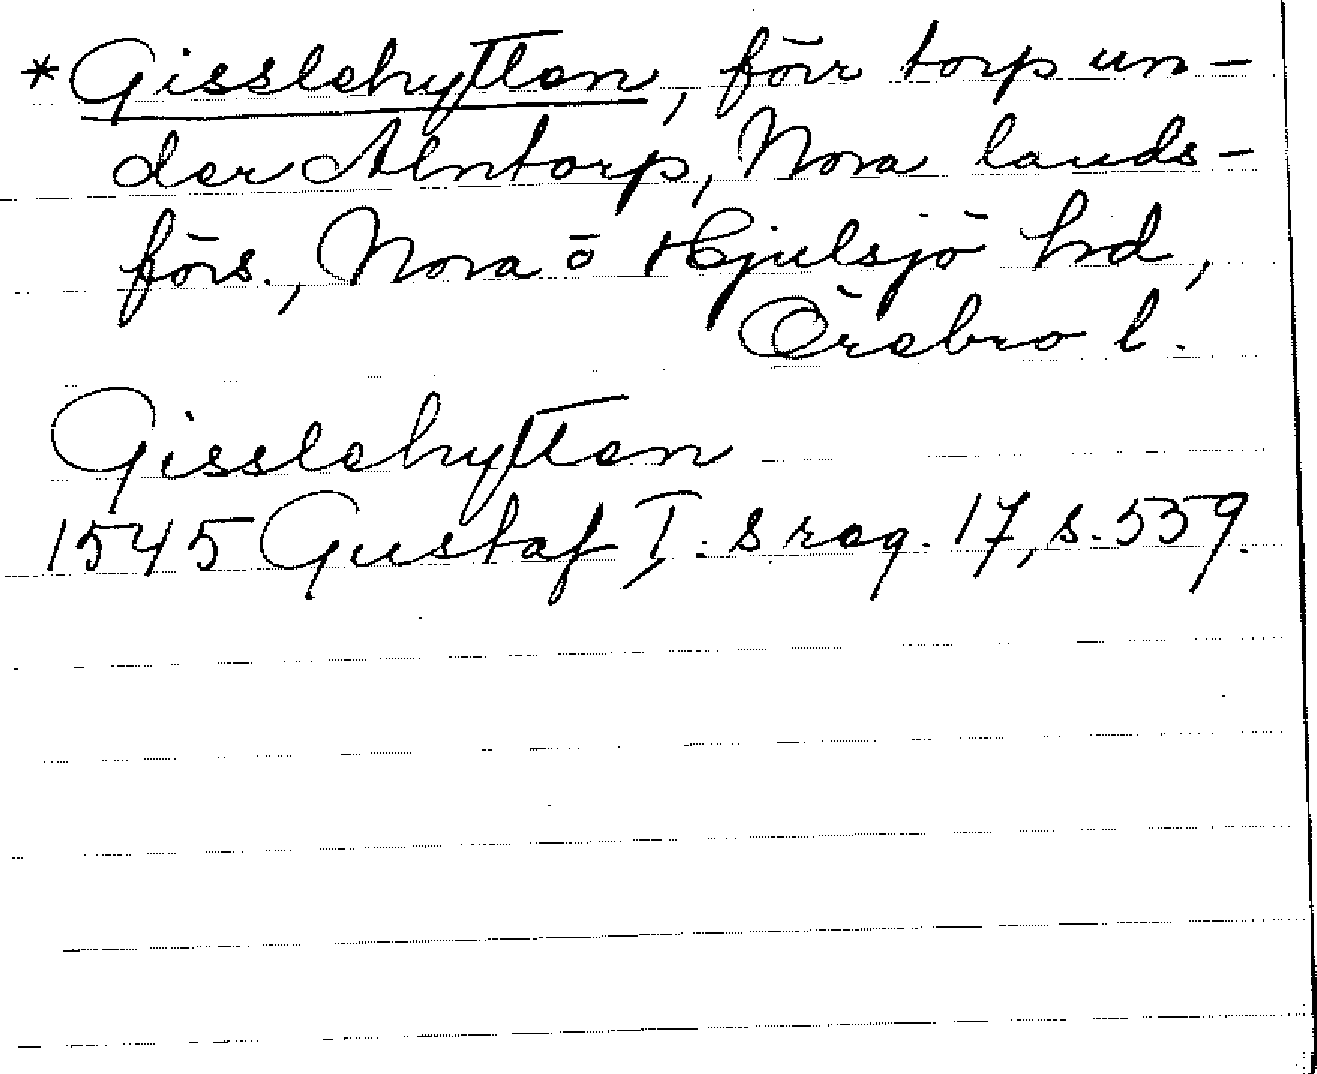 *Gisslehyttan, förr torp un-
der Alntorp, Nora lands-
förs., Nora o Hjulsjö hrd,
Örebro l.
Gisslehyttan
1545 Gustaf I:s reg. 17, s. 559.